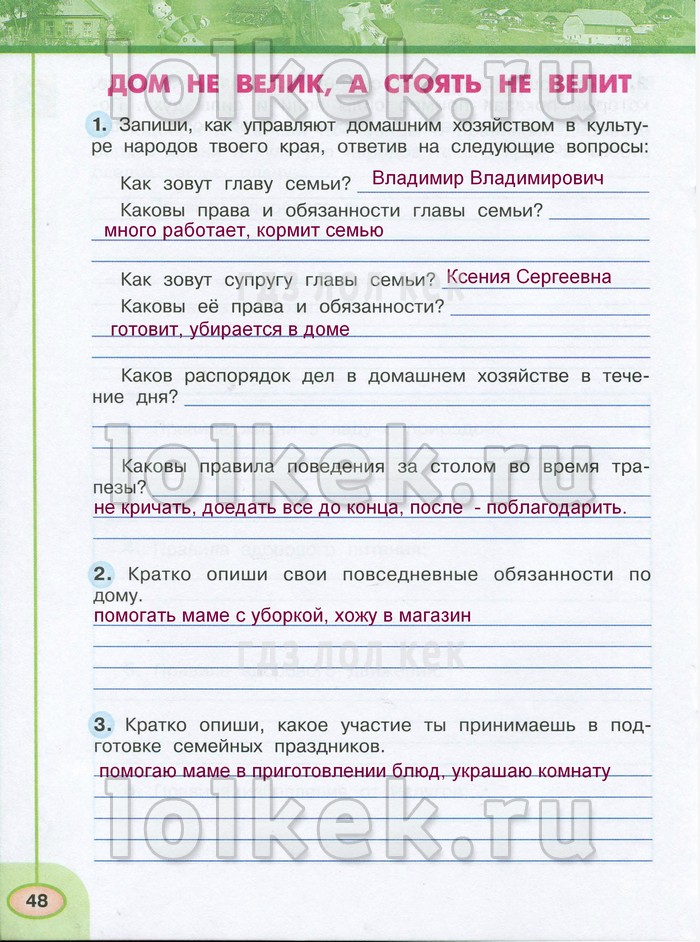 ДОМ НЕ ВЕЛИК, А СТОЯТЬ НЕ ВЕЛИТ
1. Запиши, как управляют домашним хозяйством в культу-
ре народов твоего края, ответив на следующие вопросы:
Как зовут главу семьи? Владимир Владимирович
Каковы права и обязанности главы семьи?
много работает, кормит семью
Как зовут супругу главы семьи? Ксения Сергеевна
гдз лол кек
Каковы её права и обязанности?
готовит, убирается в доме
Каков распорядок дел в домашнем хозяйстве в тече-
ние дня?
lolkek.ru
Каковы правила поведения за столом во время тра-
пезы?
не кричать, доедать все до конца, после - поблагодарить.
2. Кратко опиши свои повседневные обязанности по
дому.
помогать маме с уборкой, хожу в магазин
гдз лол кек
3. Кратко опиши, какое участие ты принимаешь в под-
готовке семейных праздников.
помогаю маме в приготовлении блюд, украшаю комнату
lolkek.ru
48